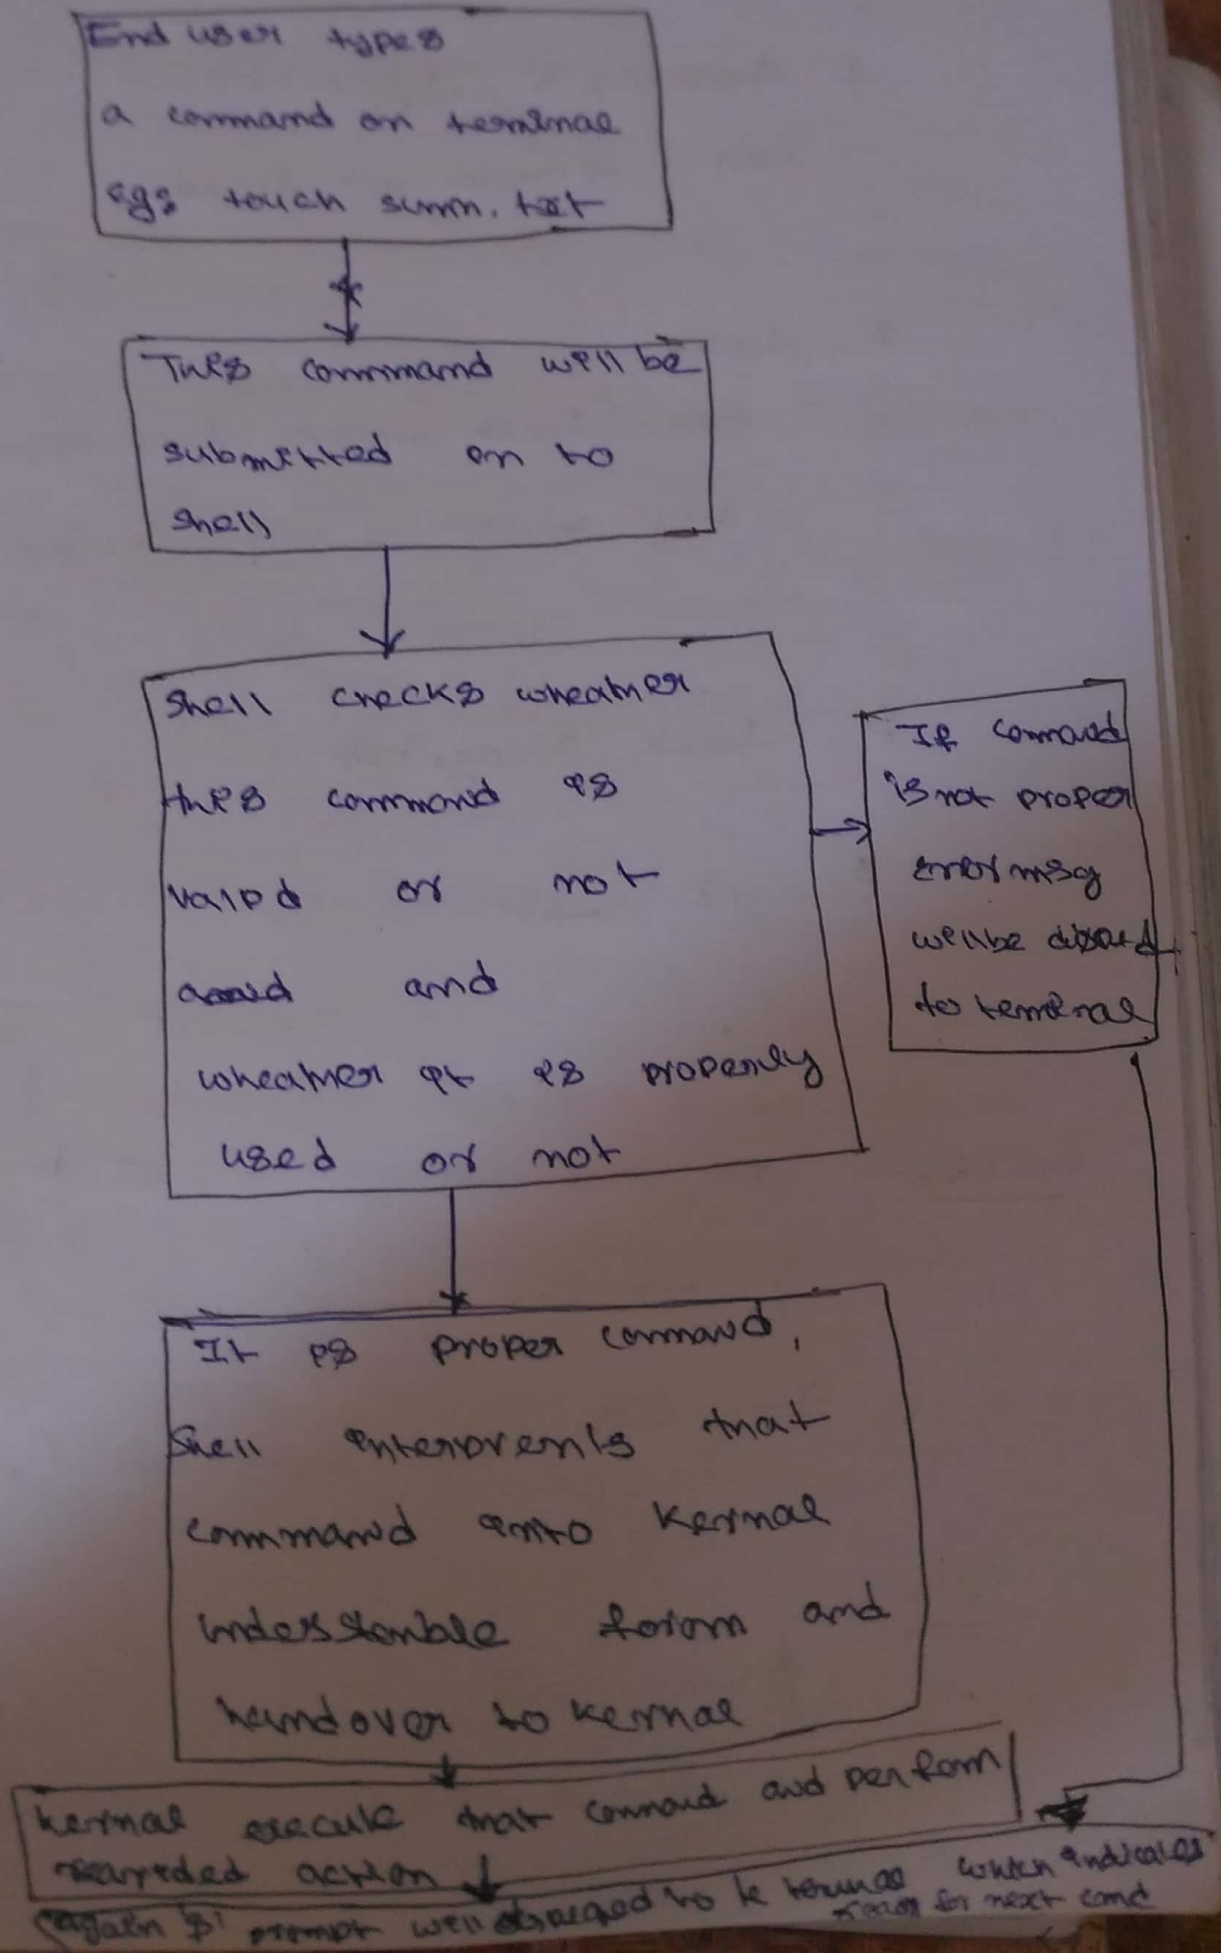 End user types
a command on terminal
eg: touch summ. txt
This command will be
submitted on to
shell
shell checks wheather
this command is
valid or not
and
wheather it is properly
used or not
If command
is not proper
error msg
will be
to terminal
It is proper command,
Shell that
command into Kernal
form and
handover to kernal
kernal execute that command and perform
action
again $ prompt will to which indicates
for next cmd